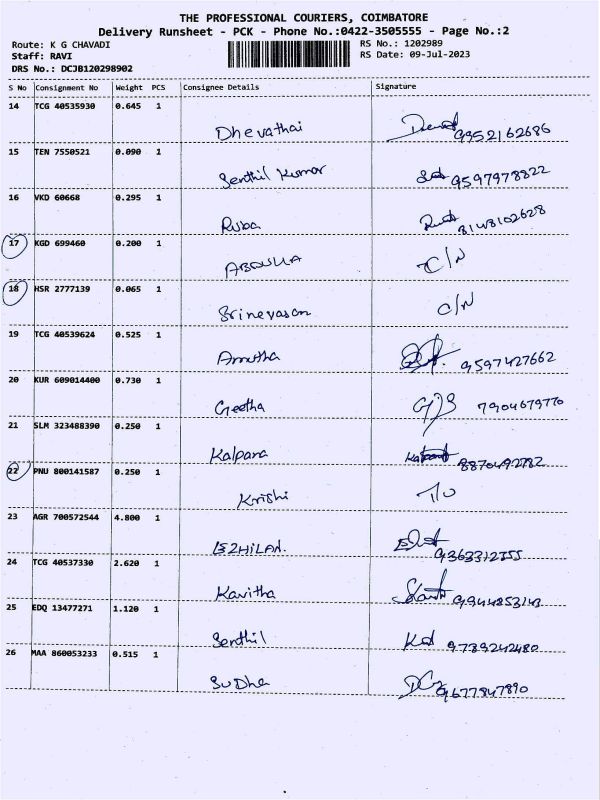 THE PROFESSIONAL COURIERS, COIMBATORE
Delivery Runsheet - PCK - Phone No.:0422-3505555 - Page No.:2
Route: K G CHAVADI
RS No.: 1202989
Staff: RAVI
RS Date: 09-Jul-2023
DRS No.: DCJB120298902
S No Consignment No Weight PCS Consignee Details Signature
14 TCG 40535930 0.645 1
Dhevathai 9952162686
15 TEN 7550521 0.090 1
Senthil Kumar 9597978822
16 VKD 60668 0.295 1
Ruba 8148102628
17 KGD 699460 0.200 1
ABDULLA C/N
18 HSR 2777139 0.065 1
Srinevasan C/N
19 TCG 40539624 0.525 1
Amutha 9597427662
20 KUR 609014400 0.730 1
Geetha 7904679770
21 SLM 323488390 0.250 1
Kalpana 8870492782
22 PNU 800141587 0.250 1
Krishi
23 AGR 700572544 4.800 1
EZHILAN. 9363312355
24 TCG 40537330 2.620 1
Kavitha 9944853143
25 EDQ 13477271 1.120 1
Senthil 9789242480
26 MAA 860053233 0.515 1
SuDha 9677847890